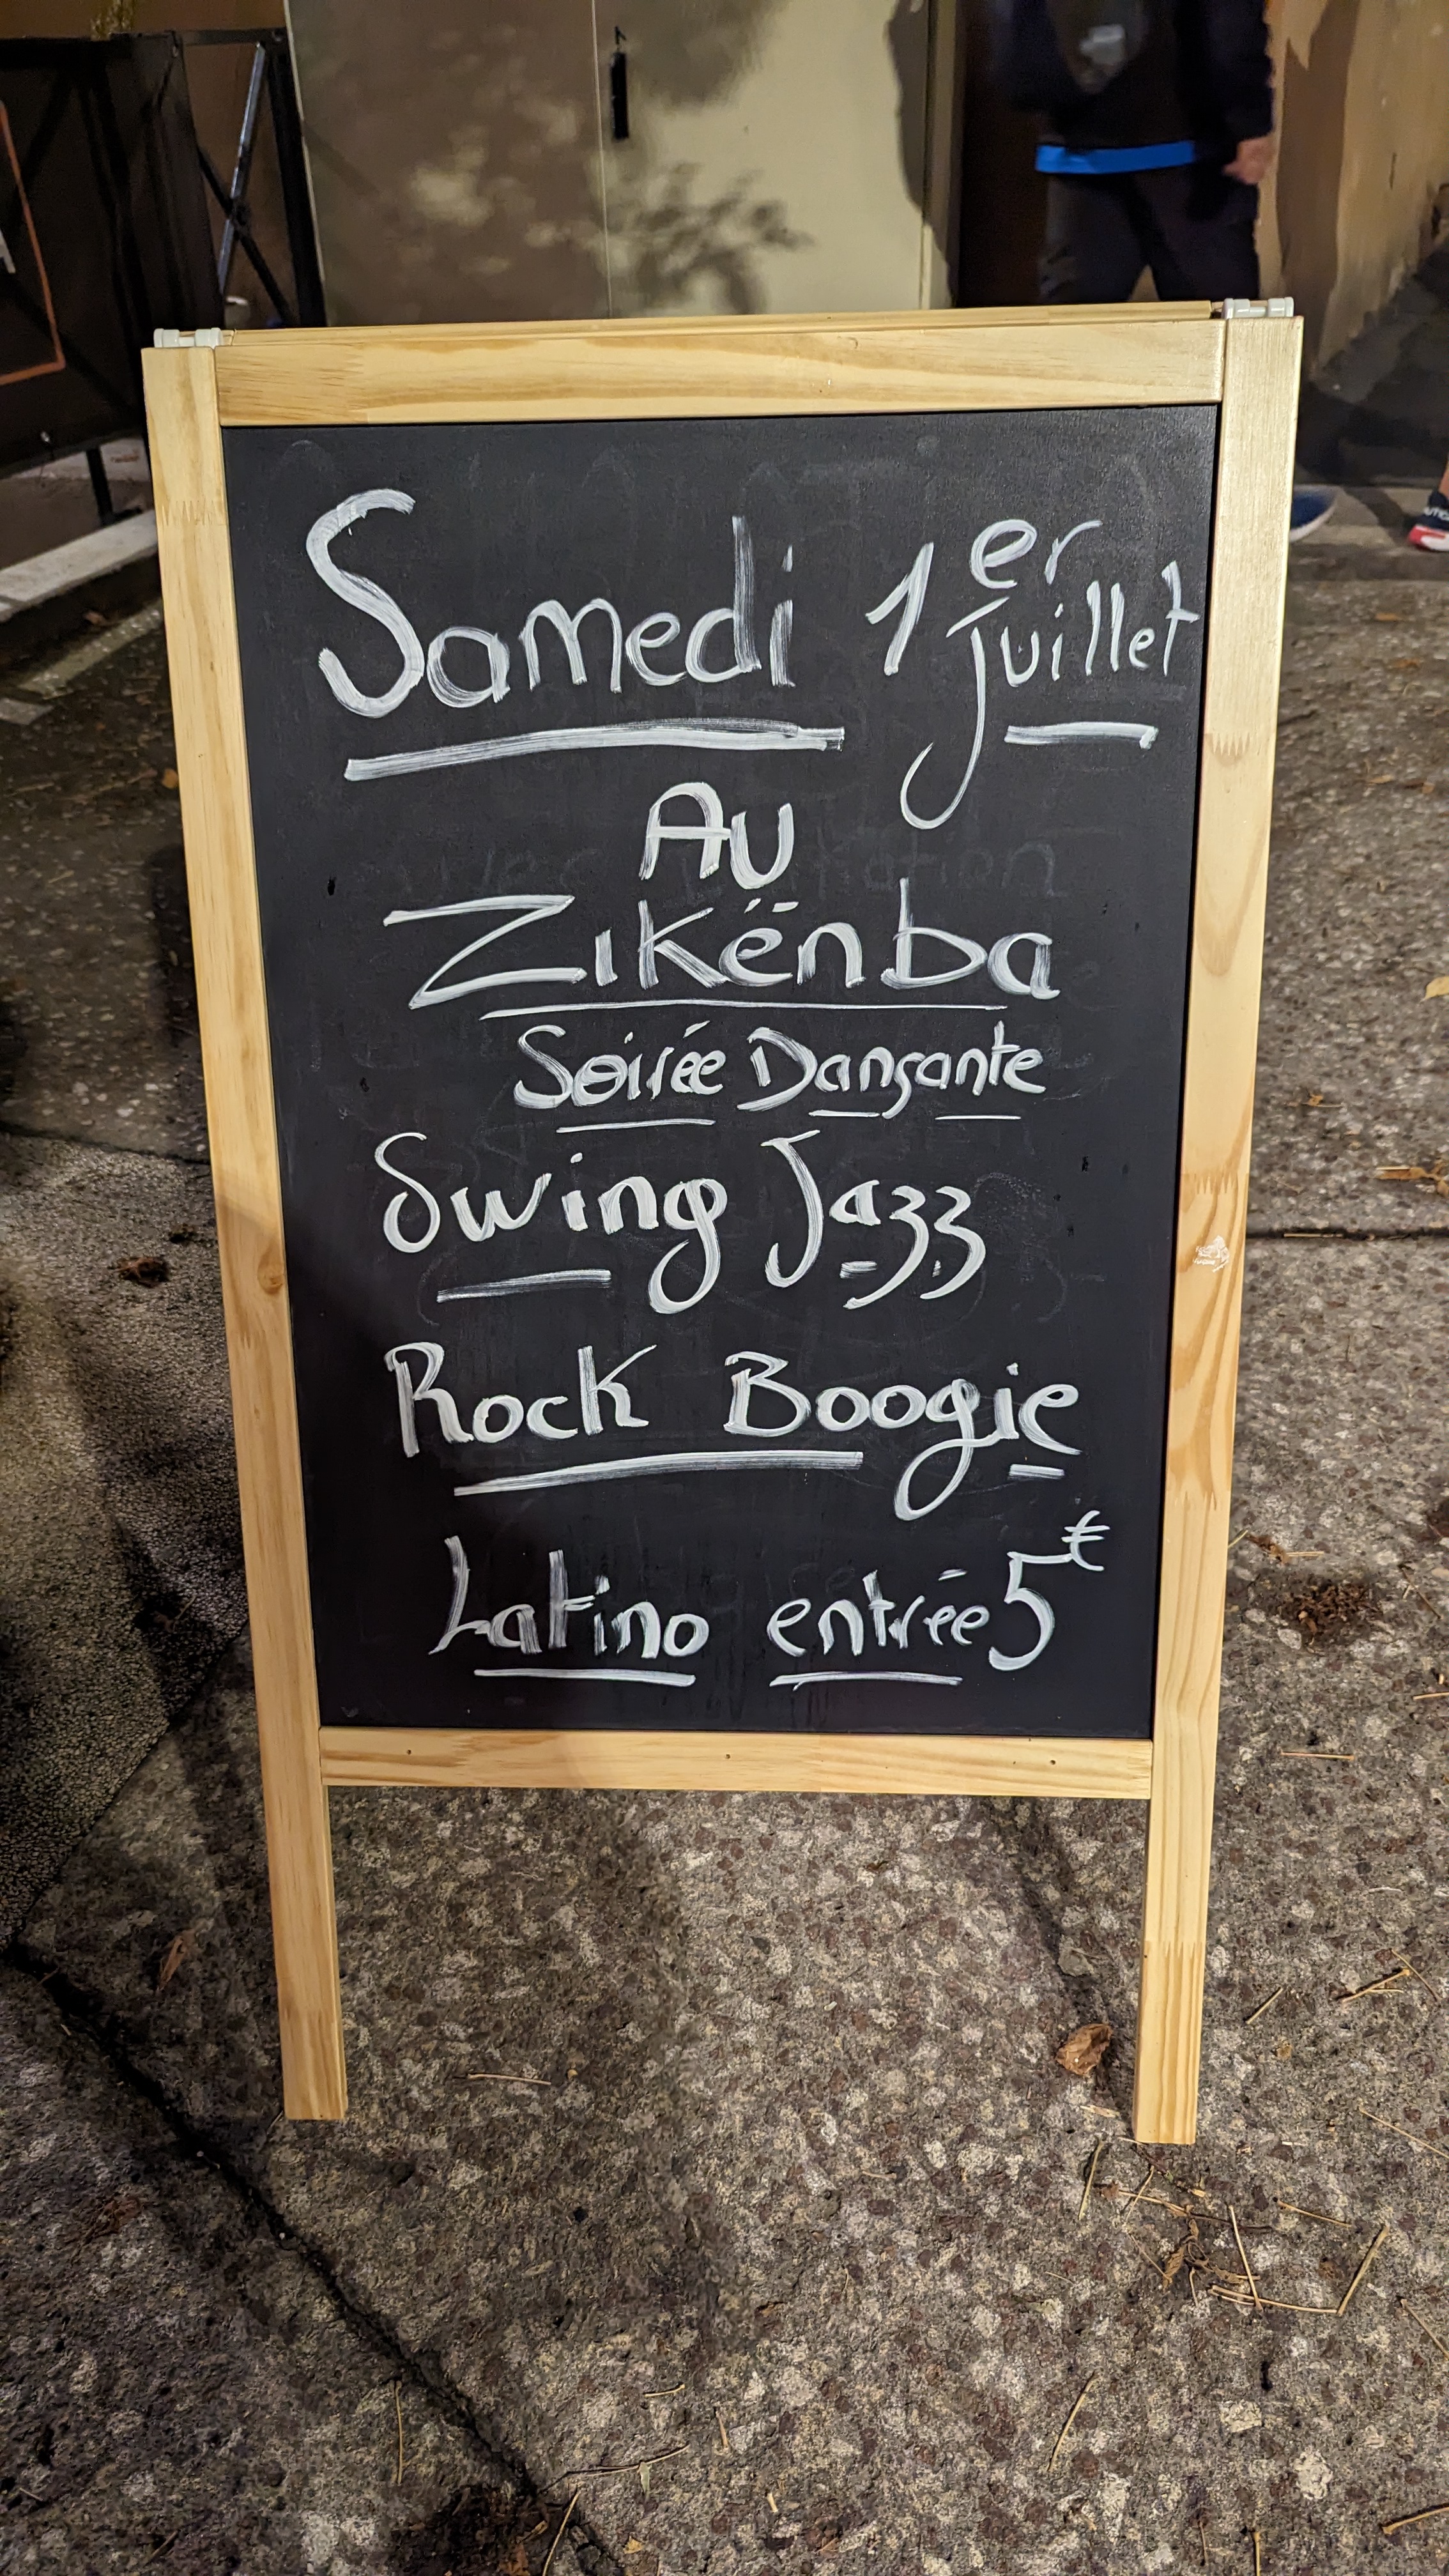 Samedi 1er Juillet
Au
Zikënba
Soirée Dansante
Swing Jazz
Rock Boogie
Latino entrée 5€